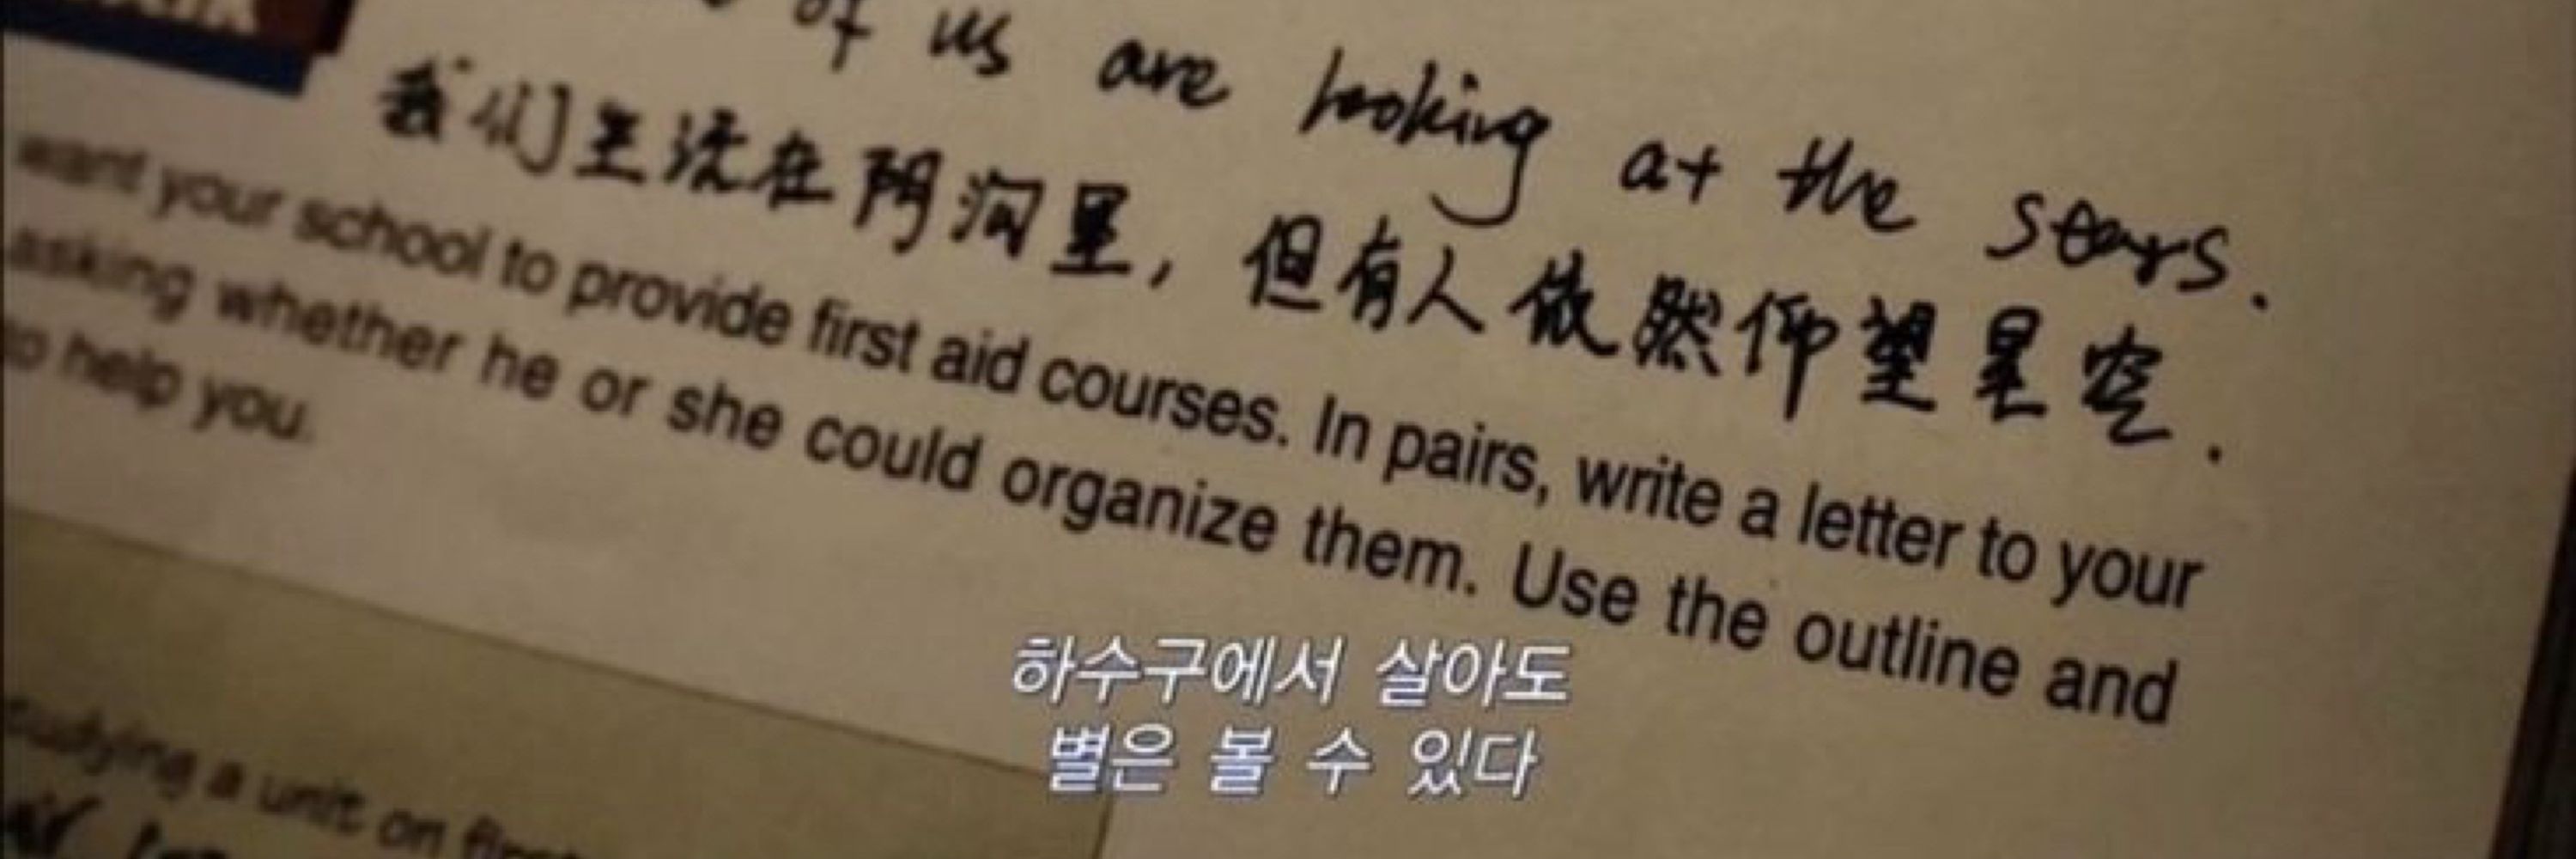 of us are looking at the stars.
我们生活在阴沟里，但有人依然仰望星空.
want your school to provide first aid courses. In pairs, write a letter to your
asking whether he or she could organize them. Use the outline and
to help you.
하수구에서 살아도
별은 볼 수 있다
studying a unit on first